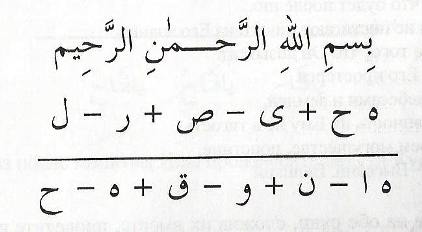 بِسمِ اللهِ الرَّحـمٰنِ الرَّحِيم
ه ح + ى – ص + ر – ل
ه ا – ن + و – ق + ه – ح